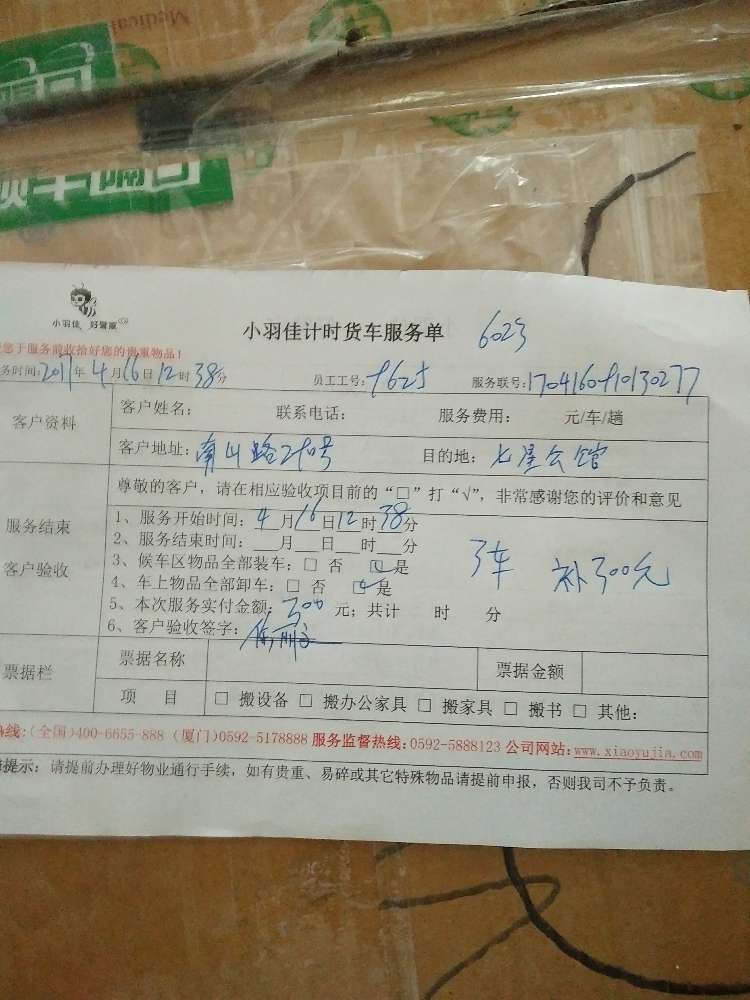 Medical
小羽佳 好管家
小羽佳计时货车服务单 6023
您于服务前收拾好您的贵重物品!
务时间:2017年4月16日12时38分 员工工号: 服务联号:
客户资料
客户姓名: 联系电话: 服务费用: 元/车/趟
客户地址:南山路 号 目的地:七星会馆
服务结束
客户验收
尊敬的客户，请在相应验收项目前的“□”打“√”，非常感谢您的评价和意见
1、服务开始时间:4月16日12时38分
2、服务结束时间:__月__日__时__分
3、候车区物品全部装车:□ 否 ☑是
4、车上物品全部卸车:□ 否 ☑是
3车 补300元
5、本次服务实付金额:300元;共计 时 分
6、客户验收签字:
票据栏
票据名称 票据金额
项 目 □ 搬设备 □ 搬办公家具 □ 搬家具 □ 搬书 □ 其他:
热线:(全国)400-6655-888 (厦门)0592-5178888 服务监督热线:0592-5888123 公司网站:www.xiaoyujia.com
提示: 请提前办理好物业通行手续，如有贵重、易碎或其它特殊物品请提前申报，否则我司不予负责。